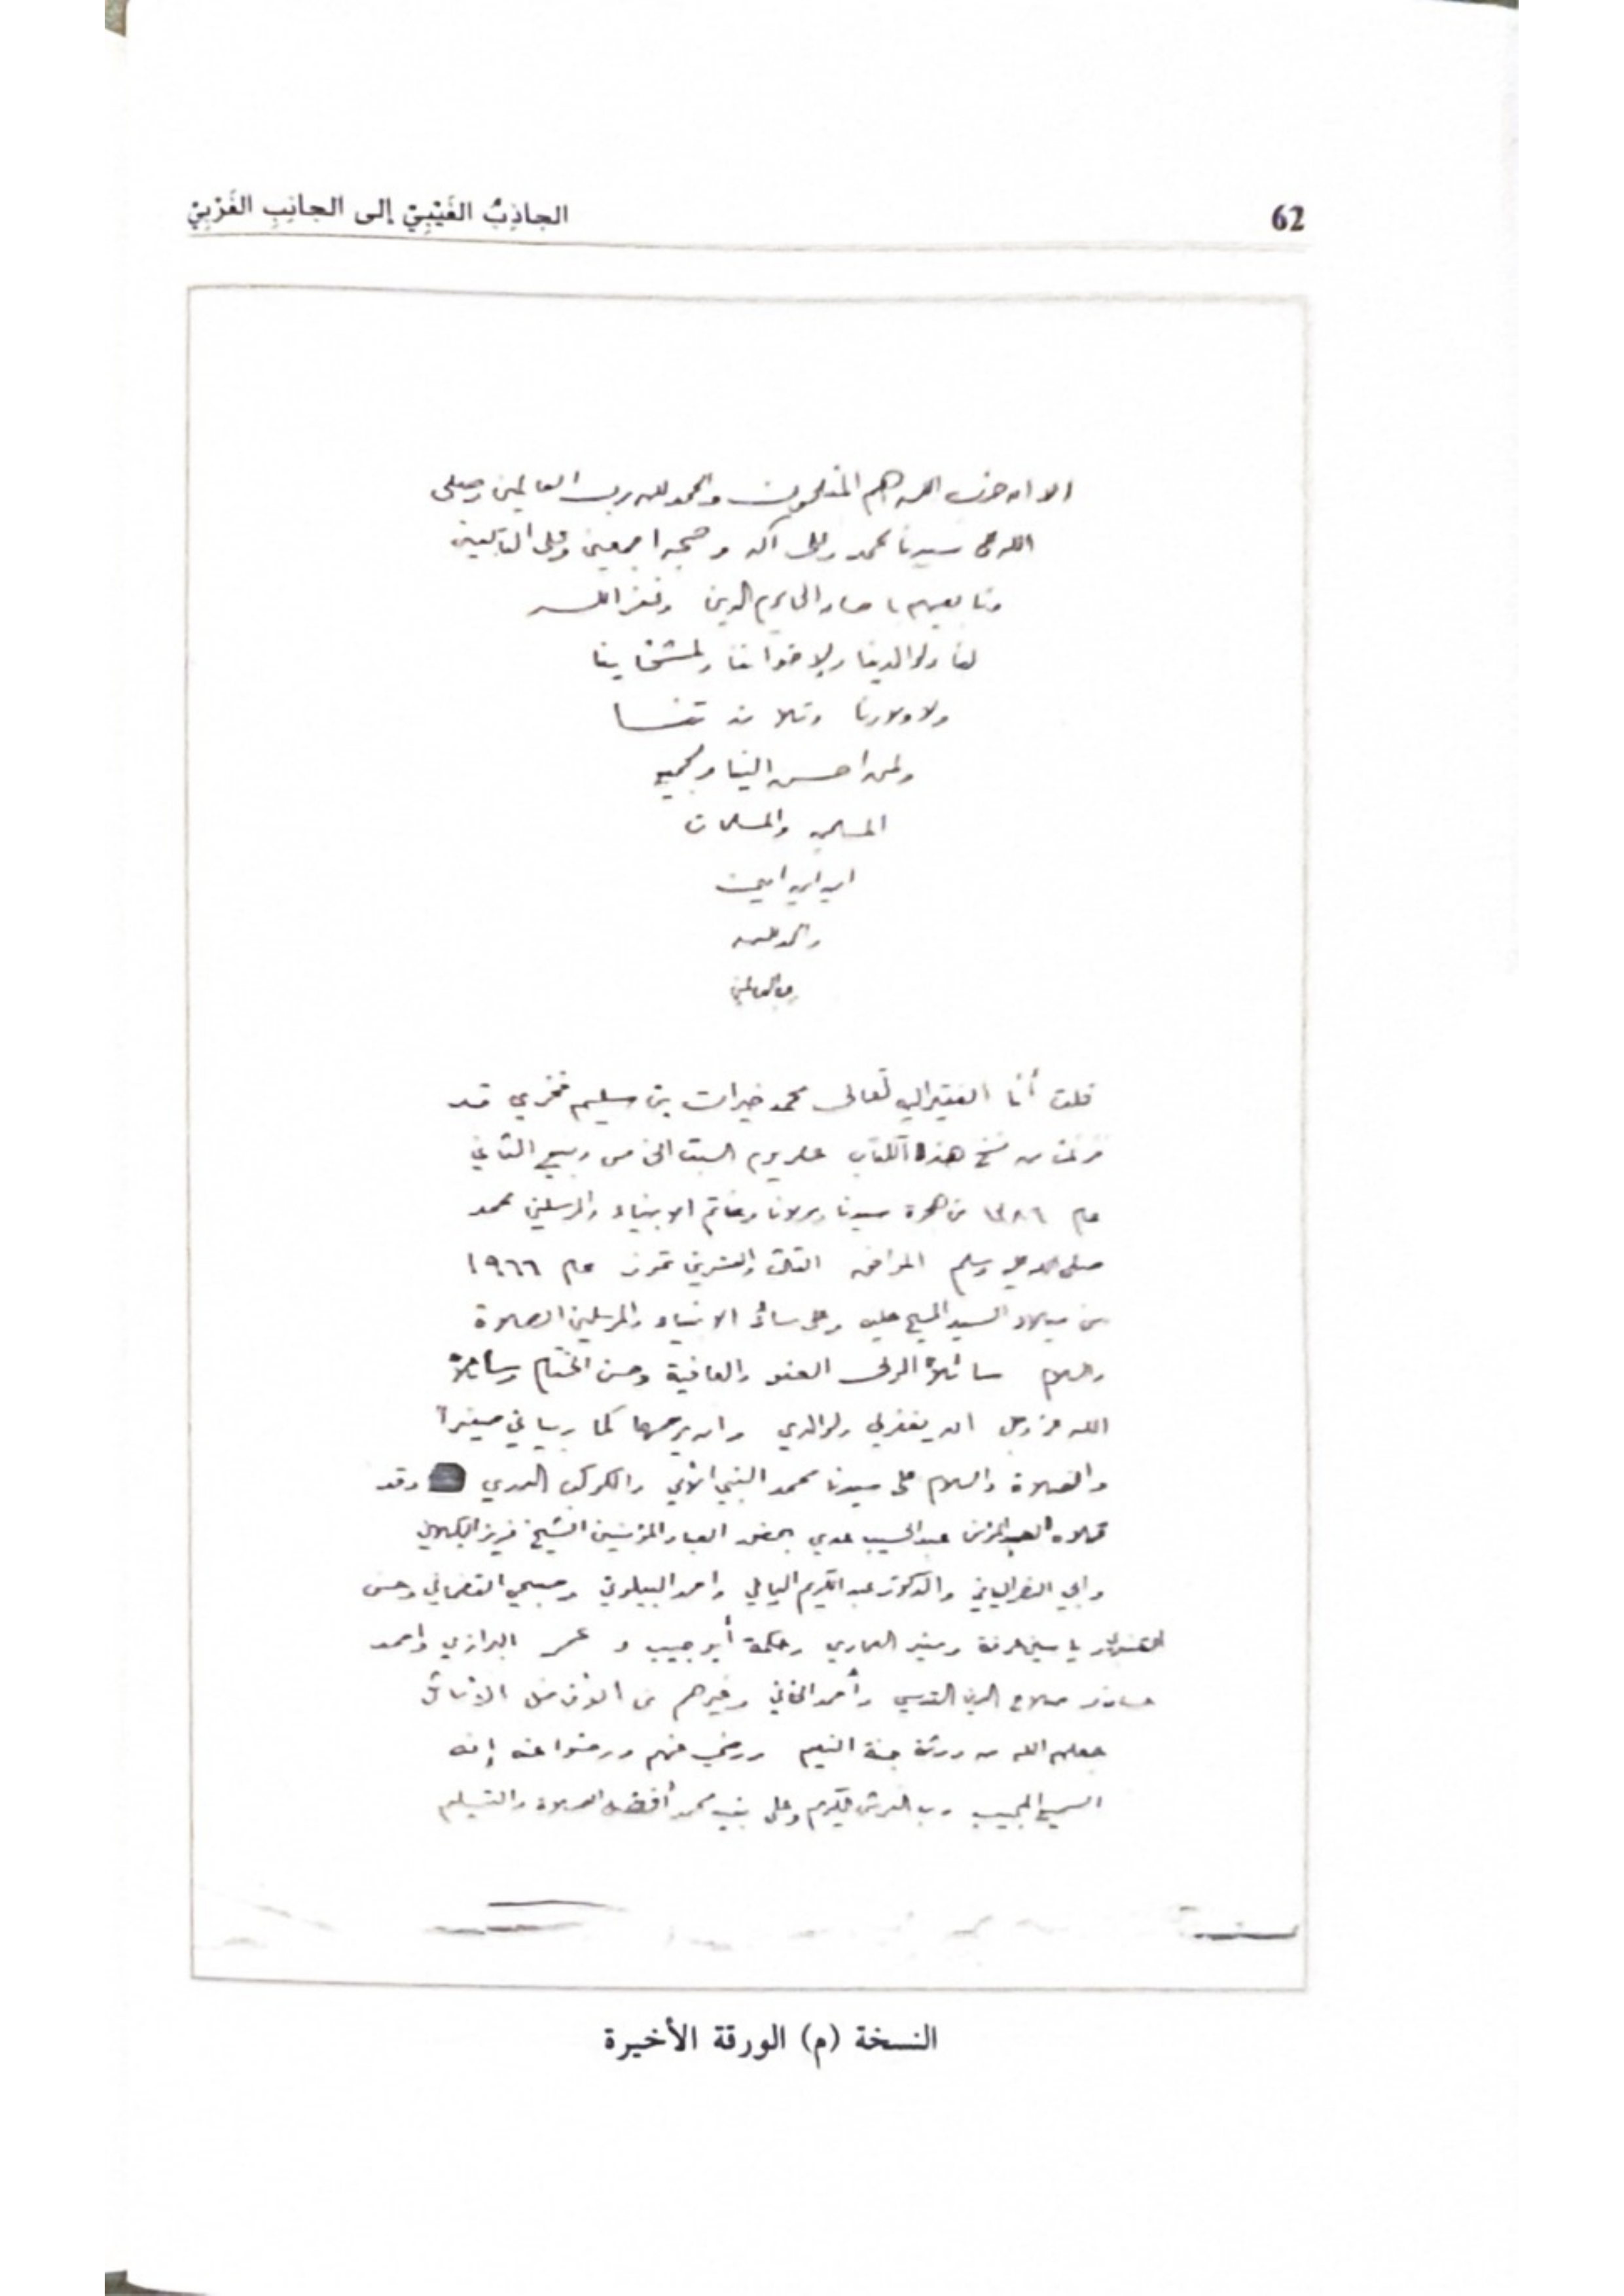 62
الجاذِبُ الغَيْبِيّ إلى الجانِبِ الغَرْبِيّ
الا ان حزب الله هم المفلحون والحمد لله رب العالمين وصلى
الله على سيدنا محمد وعلى آله وصحبه اجمعين وعلى التابعين
وتابعيهم باحسان الى يوم الدين وغفر الله
لنا ولوالدينا ولاخواننا ولمشايخنا
ولاولادنا وتلامذتنا
ولمن احسن الينا ولجميع
المسلمين والمسلمات
امين امين امين
والحمد لله
رب العالمين
قلت أنا الفقير اليه تعالى محمد خيرات بن سليم فخري قد
فرغت من نسخ هذا الكتاب يوم السبت الخامس ربيع الثاني
عام ١٣٨٦ من هجرة سيدنا ومولانا وخاتم الانبياء والمرسلين محمد
صلى الله عليه وسلم الموافق الثالث والعشرين تموز عام ١٩٦٦
من ميلاد السيد المسيح عليه وعلى سائر الانبياء والمرسلين الصلاة
والسلام سائلا المولى العفو والعافية وحسن الختام وسائلا
الله عز وجل ان يغفر لي ولوالدي وان يرحمهما كما ربياني صغيرا
والصلاة والسلام على سيدنا محمد النبي الأمي والكوكب الدري وقد
تلاه عبد الحسيب عدي بحضور الشيخ
وابي والدكتور عبد الكريم اليافي واحمد وصبحي وحسن
ياسين عرفة ومنير العماري وحكمة أبو حبيب و عمر البرازي واحمد
صلاح الدين القدسي وأحمد وغيرهم من الافاضل الأماثل
جعلهم الله من ورثة جنة النعيم ورضي عنهم ورضوا عنه إنه
السميع المجيب رب العرش الكريم وعلى نبيه محمد أفضل الصلاة والتسليم
النسخة (م) الورقة الأخيرة